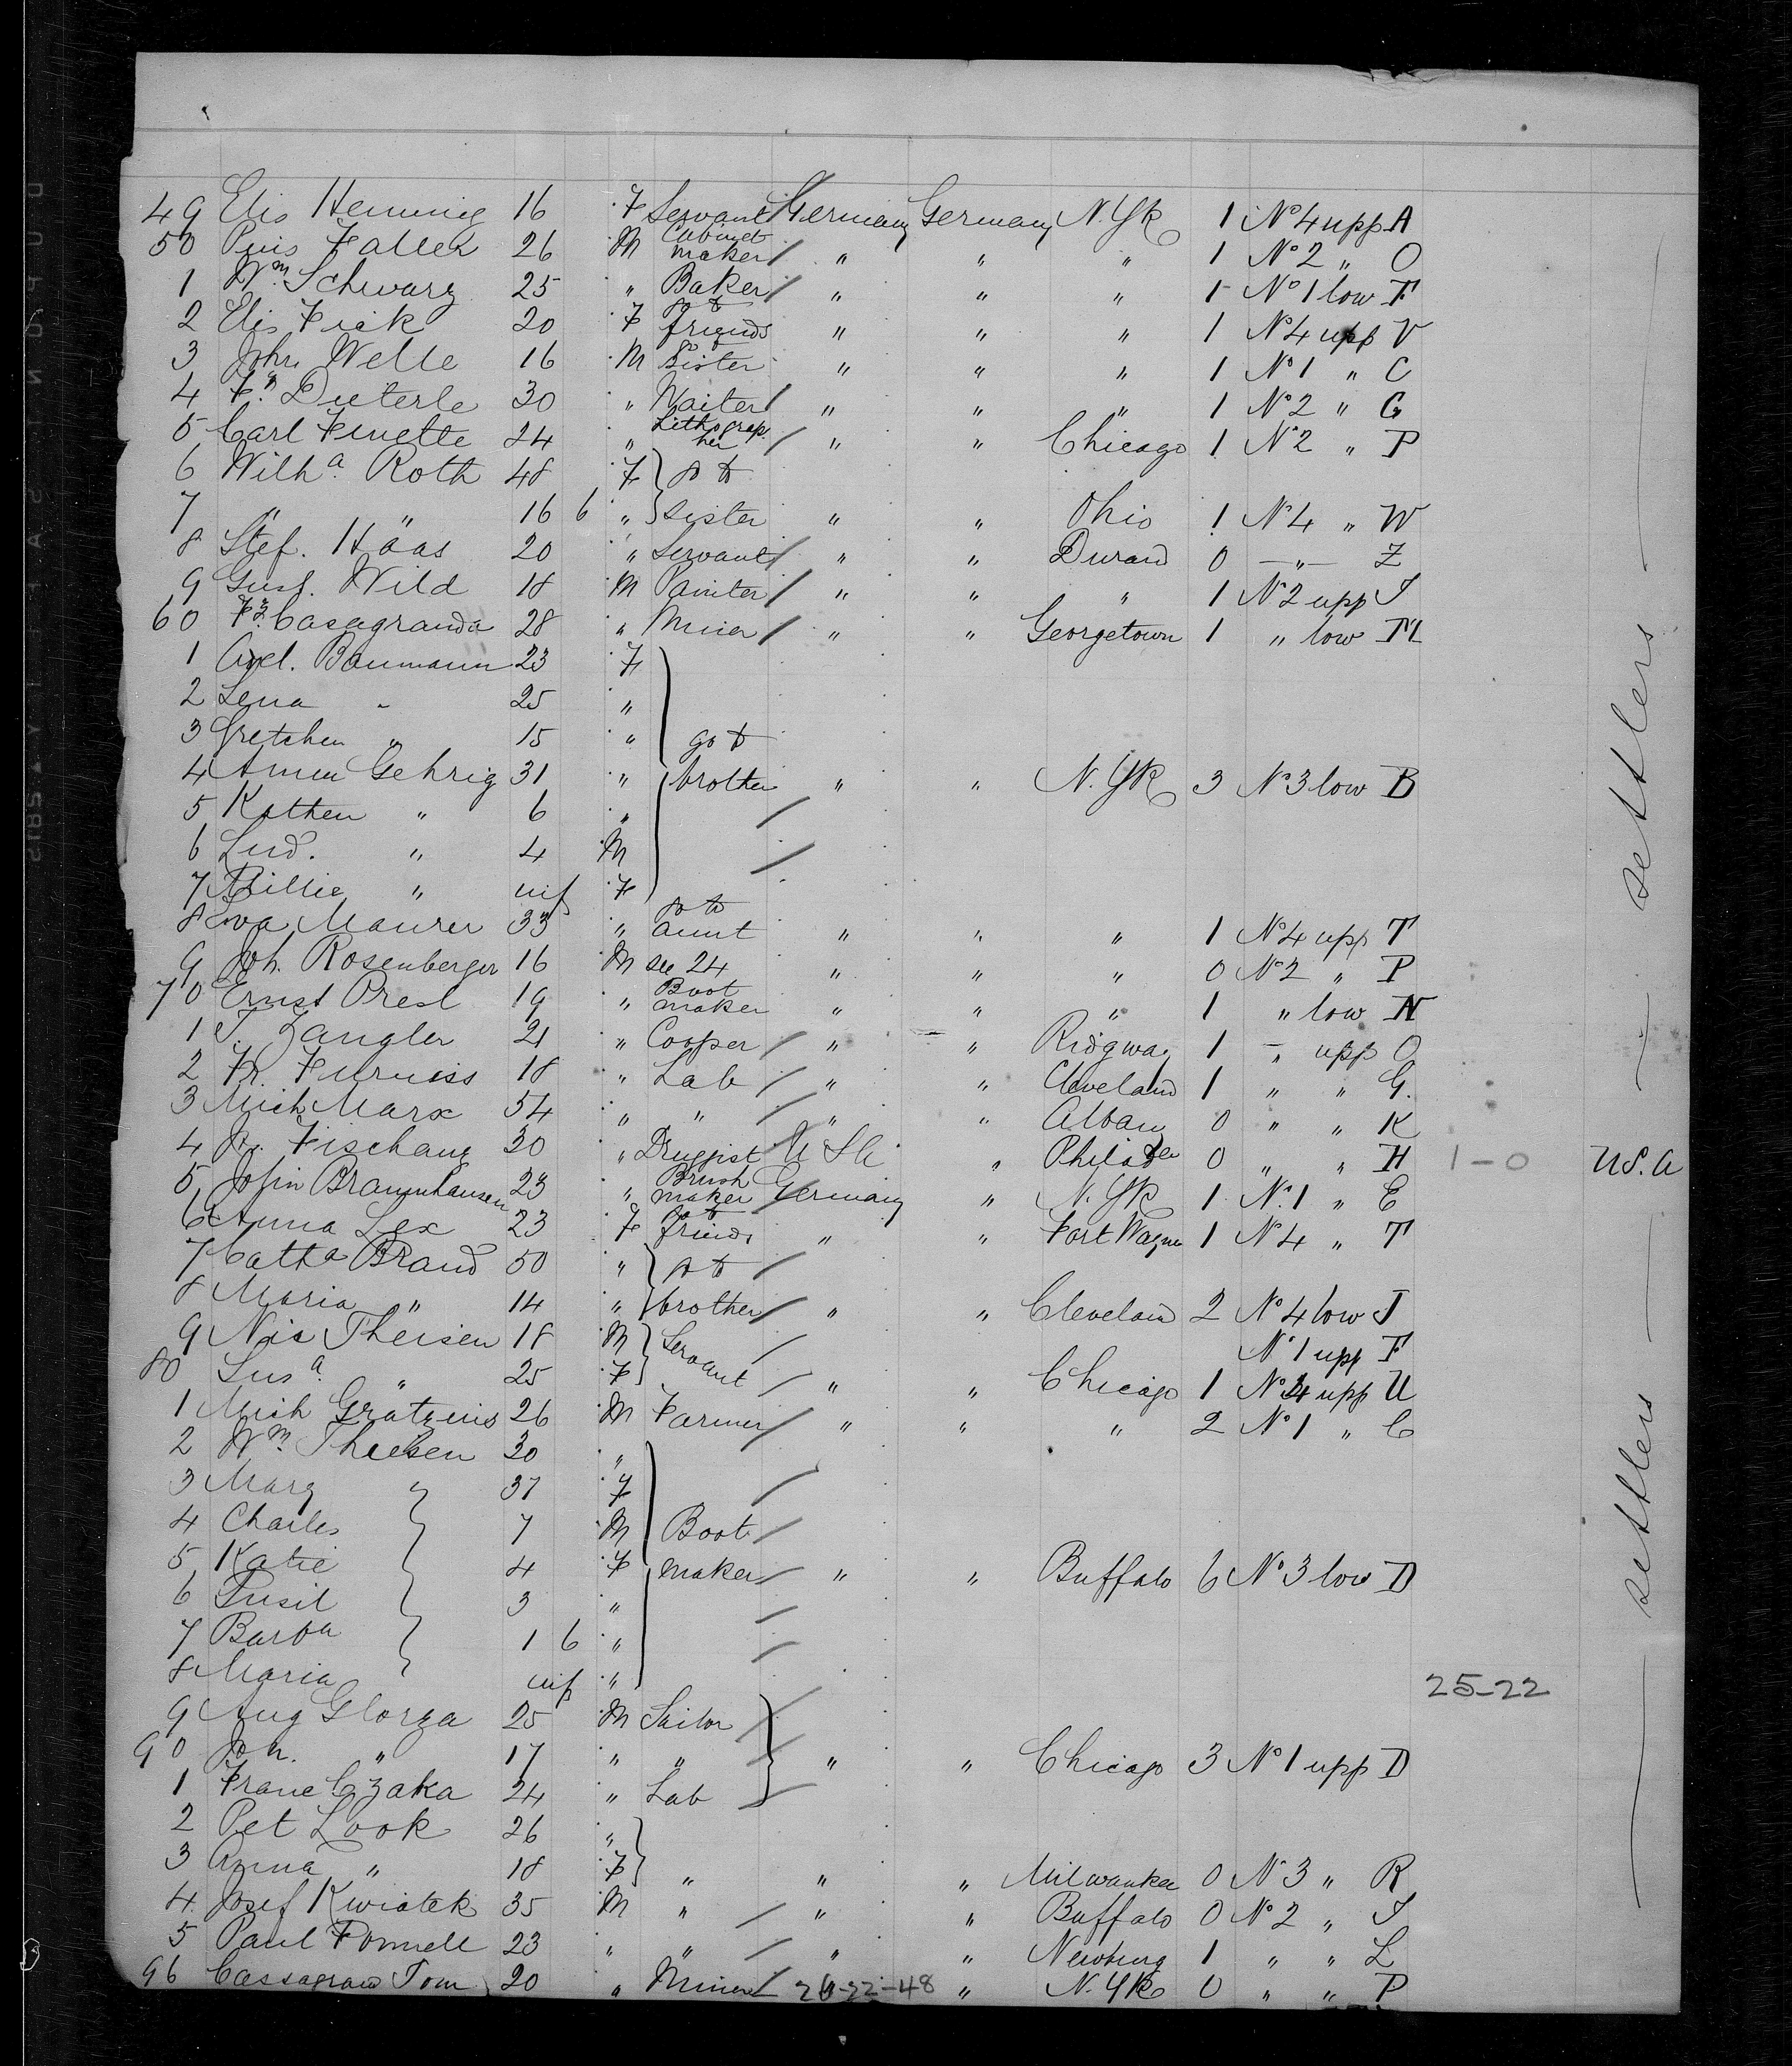 49 Elis Hennig 16 F Servant Germany Germany N.Yk 1 No 4 upp A
50 Pius Faller 26 M Cabinet maker " " " 1 No 2 " O
1 Wm Schwarz 25 " Baker " " " 1 No 1 low F
2 Elis Frick 20 F go to friends " " " 1 No 4 upp V
3 John Welle 16 M go to Sister " " " 1 No 1 " C
4 Dieterle 30 " Waiter " " " 1 No 2 " G
5 Carl Finette 24 " Lithograp her " " Chicago 1 No 2 " P
6 Wilha Roth 48 F go to
7 " " 16 6 " sister " " Ohio 1 No 4 " W
8 Stef. Haas 20 " Servant " " Durand 0 — " — Z
9 Gust. Wild 18 M Painter " " " 1 No 2 upp J
60 Fz Casagranda 28 " Miner " " Georgetown 1 " low M
1 Baumann 23 F
2 Lena " 25 "
3 Gretchen " 15 " go to
4 Gehrig 31 " brother " " N.Yk 3 No 3 low B
5 Kathen " 6 "
6 Lud. " 4 M
7 Billie " inf F
8 Eva Maurer 33 " go to aunt " " " 1 No 4 upp T
9 Joh. Rosenberger 16 M see 24 " " " 0 No 2 " P
70 Ernst Presl 19 " Boot maker " " " 1 " low N
1 J. Zangler 21 " Cooper " " Ridgway 1 " upp O
2 Fr. Furniss 18 " Lab " " Cleveland 1 " " G.
3 Mich Marx 54 " " " " Albany 0 " " K
4 Fischang 30 " Druggist U S A " Philadel 0 " " H 1-0 U.S.A
5 John Braunhausen 23 " Brush maker Germany " N.Yk 1 No 1 " E
6 Anna Lex 23 F go to friends " " Fort Wayne 1 No 4 " T
7 Catha Brand 50 " go to
8 Maria " 14 " brother " " Cleveland 2 No 4 low J
9 Nic Theisen 18 M Servant No 1 upp F
80 Susa " 25 F " " Chicago 1 No 4 upp U
1 Mich Gratzeus 26 M Farmer " " " 2 No 1 " C
2 Wm Theisen 30 "
3 Marg " 37 F
4 Charles 7 M Boot
5 Katie 4 F maker " " Buffalo 6 No 3 low D
6 Susil 3 "
7 Barba 1 6 "
8 Maria inf "
25-22
9 Aug Glorza 25 M Tailor
90 Joh. " 17 " " " " Chicago 3 No 1 upp D
1 Franc Czaka 24 " Lab
2 Pet Look 26 "
3 Anna " 18 F " " " Milwaukee 0 No 3 " R
4 Josef Kwiatek 35 M " " " Buffalo 0 No 2 " J
5 Paul 23 " " " " Newburg 1 " " L
96 Cassagrand Tom 20 " Miner 26-22-48 " N.Yk 0 " " P
settlers
settlers